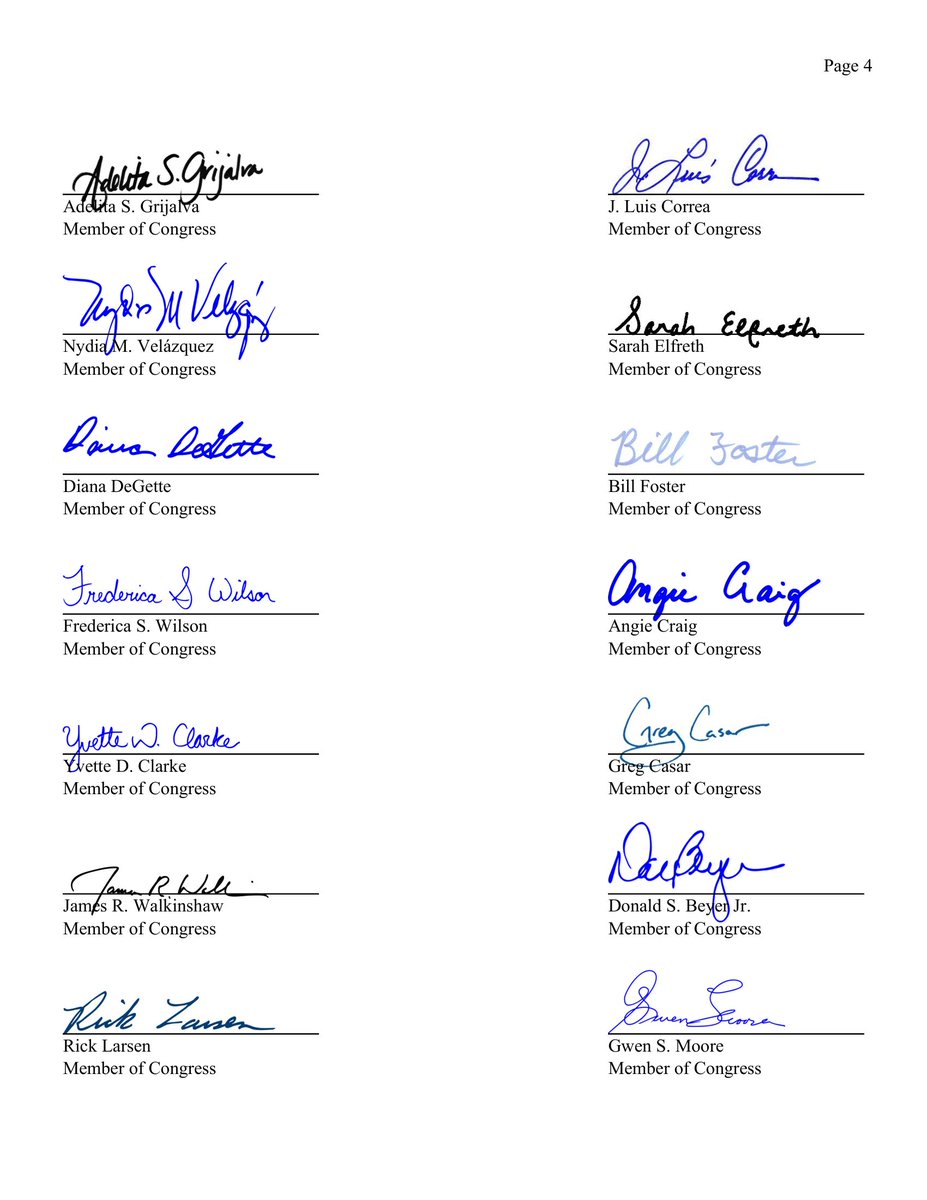 Page 4
Adelita S. Grijalva
Adelita S. Grijalva
Member of Congress
J. Luis Correa
J. Luis Correa
Member of Congress
Nydia M Velázquez
Nydia M. Velázquez
Member of Congress
Sarah Elfreth
Sarah Elfreth
Member of Congress
Diana DeGette
Diana DeGette
Member of Congress
Bill Foster
Bill Foster
Member of Congress
Frederica S Wilson
Frederica S. Wilson
Member of Congress
Angie Craig
Angie Craig
Member of Congress
Yvette D. Clarke
Yvette D. Clarke
Member of Congress
Greg Casar
Greg Casar
Member of Congress
James R. 
James R. Walkinshaw
Member of Congress
Don Beyer
Donald S. Beyer Jr.
Member of Congress
Rick Larsen
Rick Larsen
Member of Congress
Gwen S Moore
Gwen S. Moore
Member of Congress